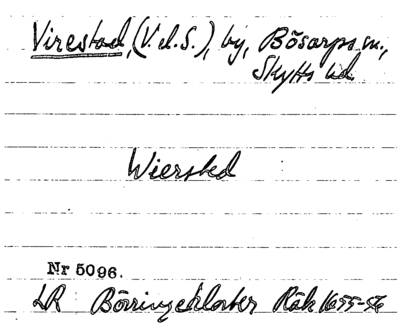 Virestad, (V. d. S.), by, Bösarps sn.,
Skytts hd.
Wiersted
Nr 5096.
LR Börringekloster Räk 1655-56